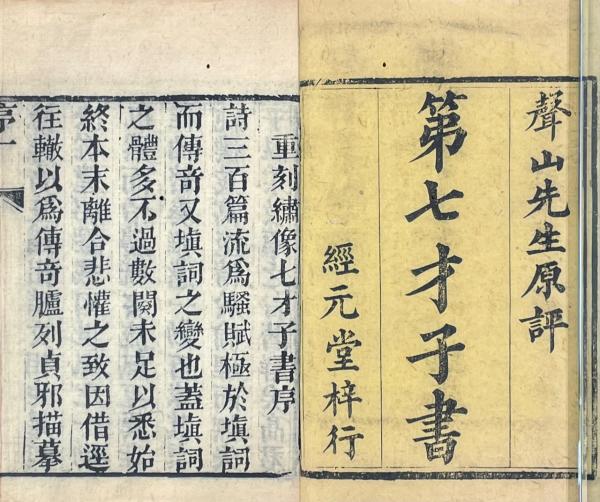 聲山先生原評
第七才子書
經元堂梓行
重刻繡像七才子書序
詩三百篇流爲騷賦極於塡詞
而傳奇又塡詞之變也蓋塡詞
之體多不過數闋未足以悉始
終本末離合悲懽之致因借逕
往轍以爲傳奇臚列貞邪描摹
序一